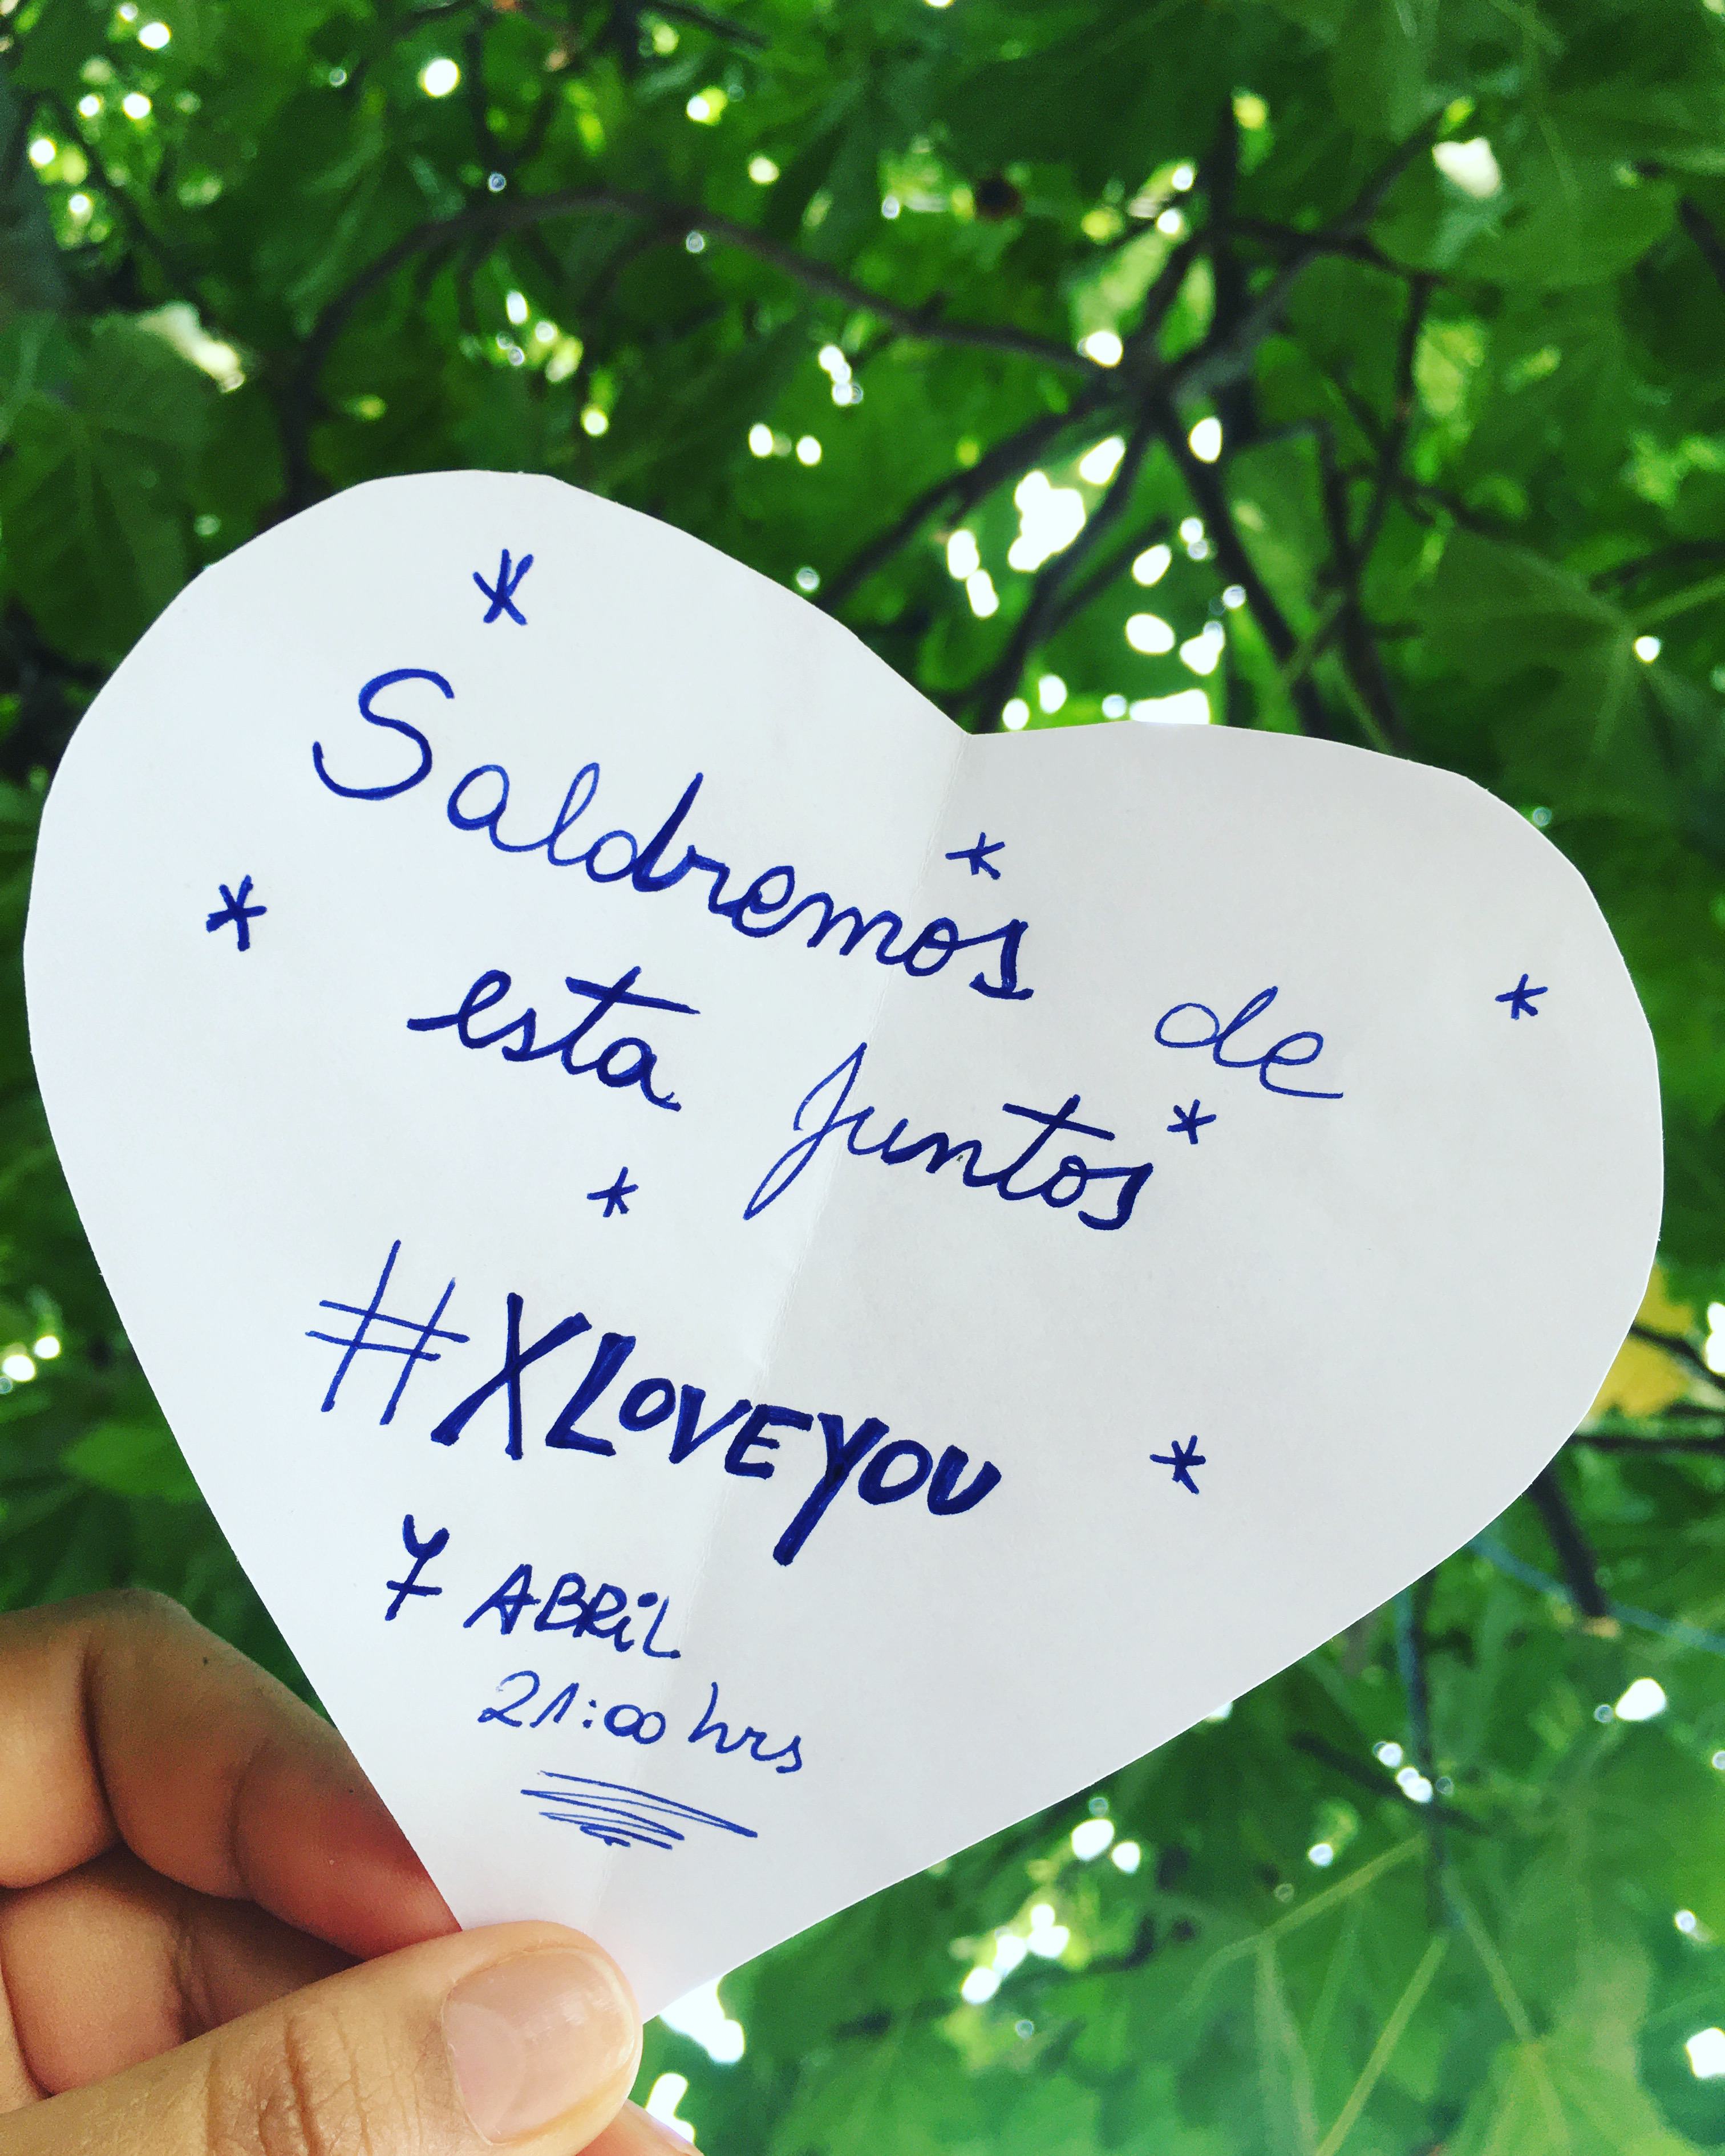 Saldremos de
esta Juntos
#XLOVEYOU
7 ABRiL
21:00 hrs